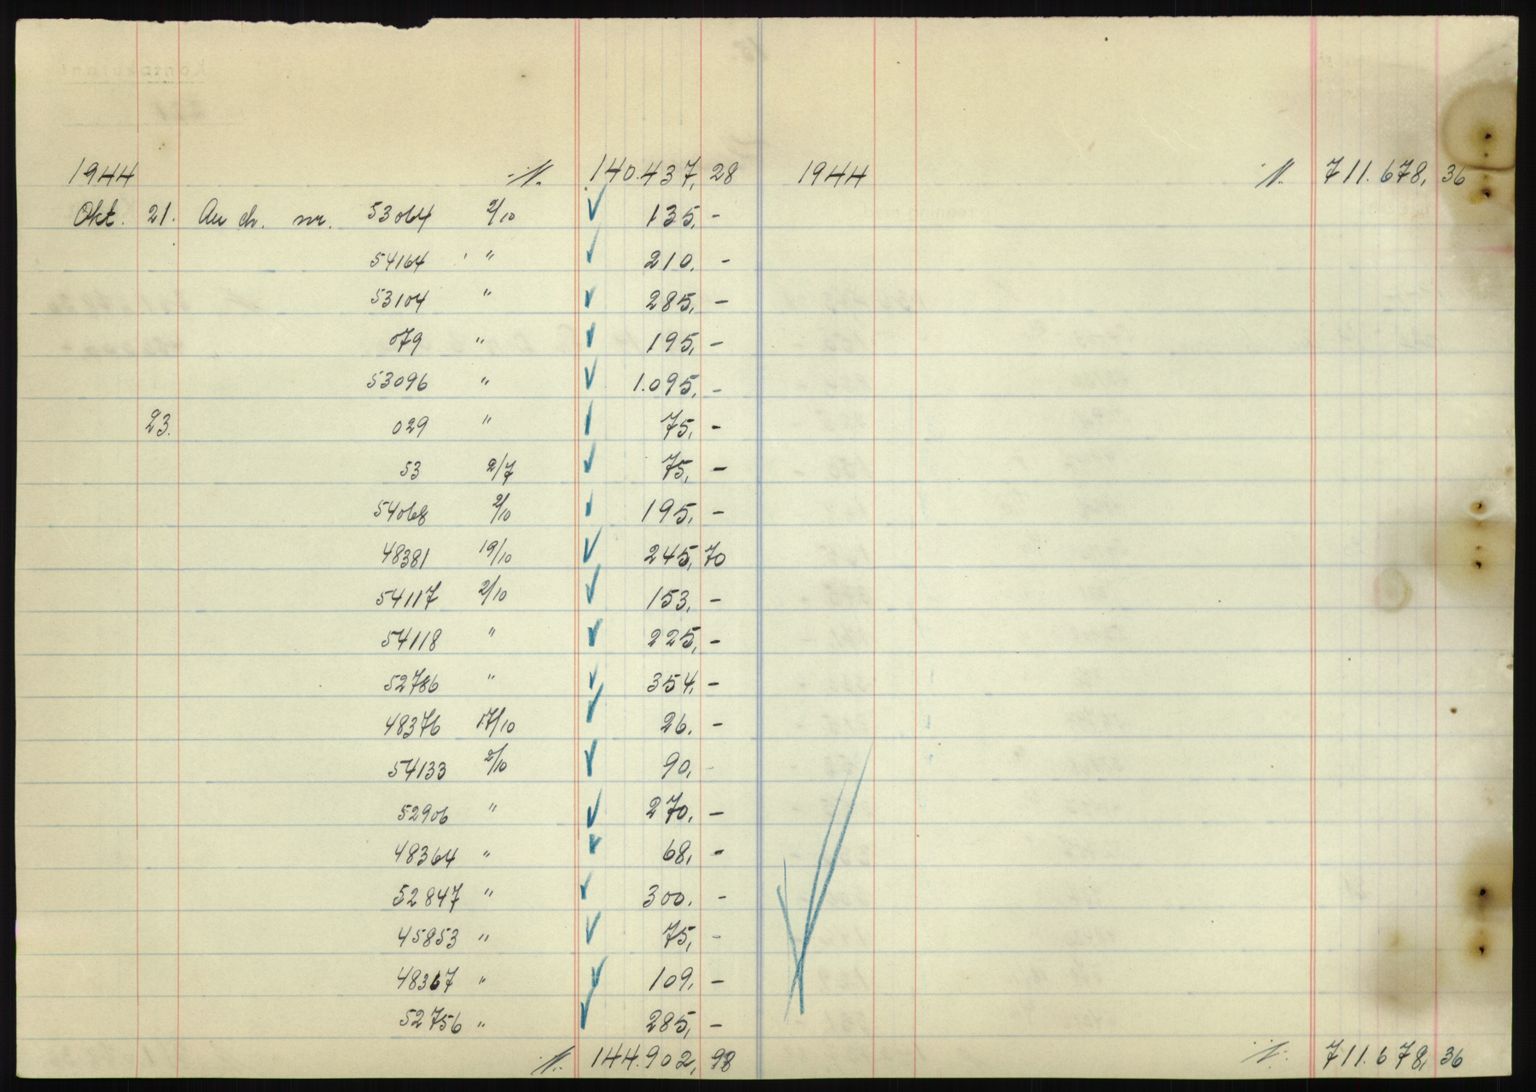 1944 140.437,28
Okt. 21. An ch. nr. 53064 2/10 135,-
54164 " 210,-
53104 " 285,-
079 " 195,-
53096 " 1.095,-
23. 029 " 75,-
53 2/7 75,-
54068 2/10 195,-
48381 19/10 245,70
54117 2/10 153,-
54118 " 225,-
52786 " 354,-
48376 17/10 26,-
54133 2/10 90,-
52906 " 270,-
48364 " 68,-
52847 " 300,-
45853 " 75,-
48367 " 109,-
52756 " 285,-
144.902,98
1944 711.678,36
711.678,36